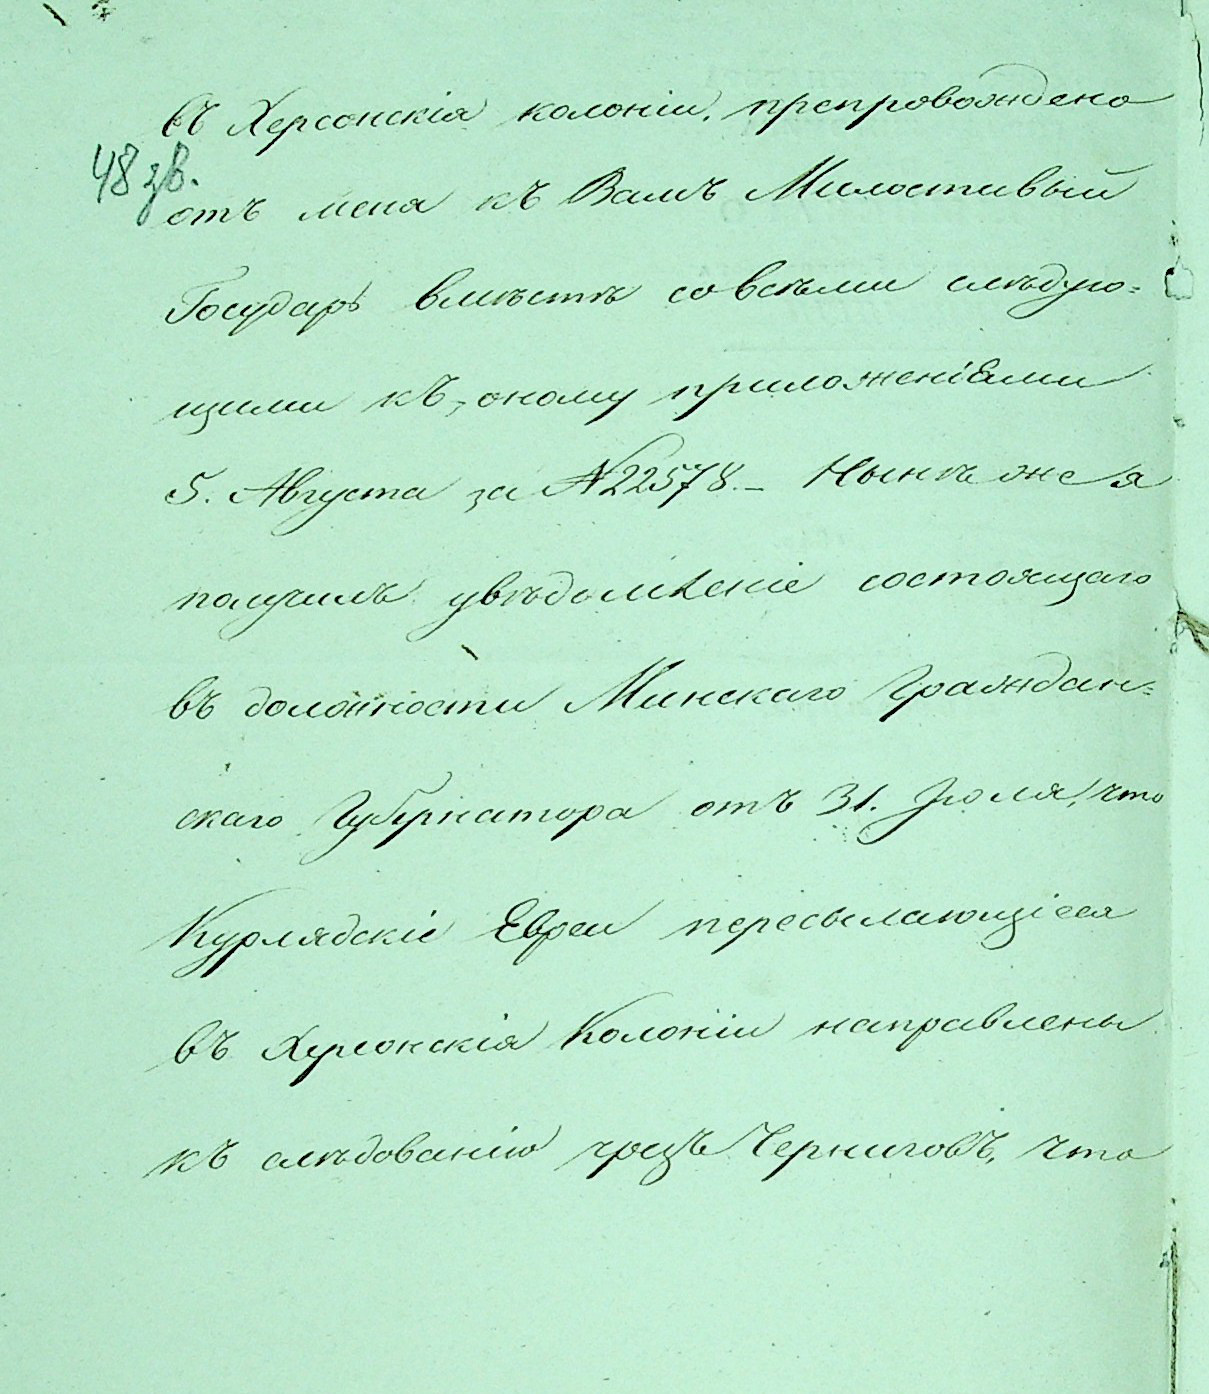 въ Херсонскія колоніи, препровождено
48 зв.
отъ меня къ Вамъ Милостивый
Государь вмѣстѣ со всѣми слѣдую=
щими къ оному приложеніями
5. Августа за №22578. – Нынѣ же я
получилъ увѣдомленіе состоящаго
въ должности Минскаго Граждан=
скаго Губернатора отъ 31. Іюля, что
Курлядскіе Евреи пересылающіеся
въ Херсонскія Колоніи направлены
къ слѣдованію чрезъ Черниговъ, что